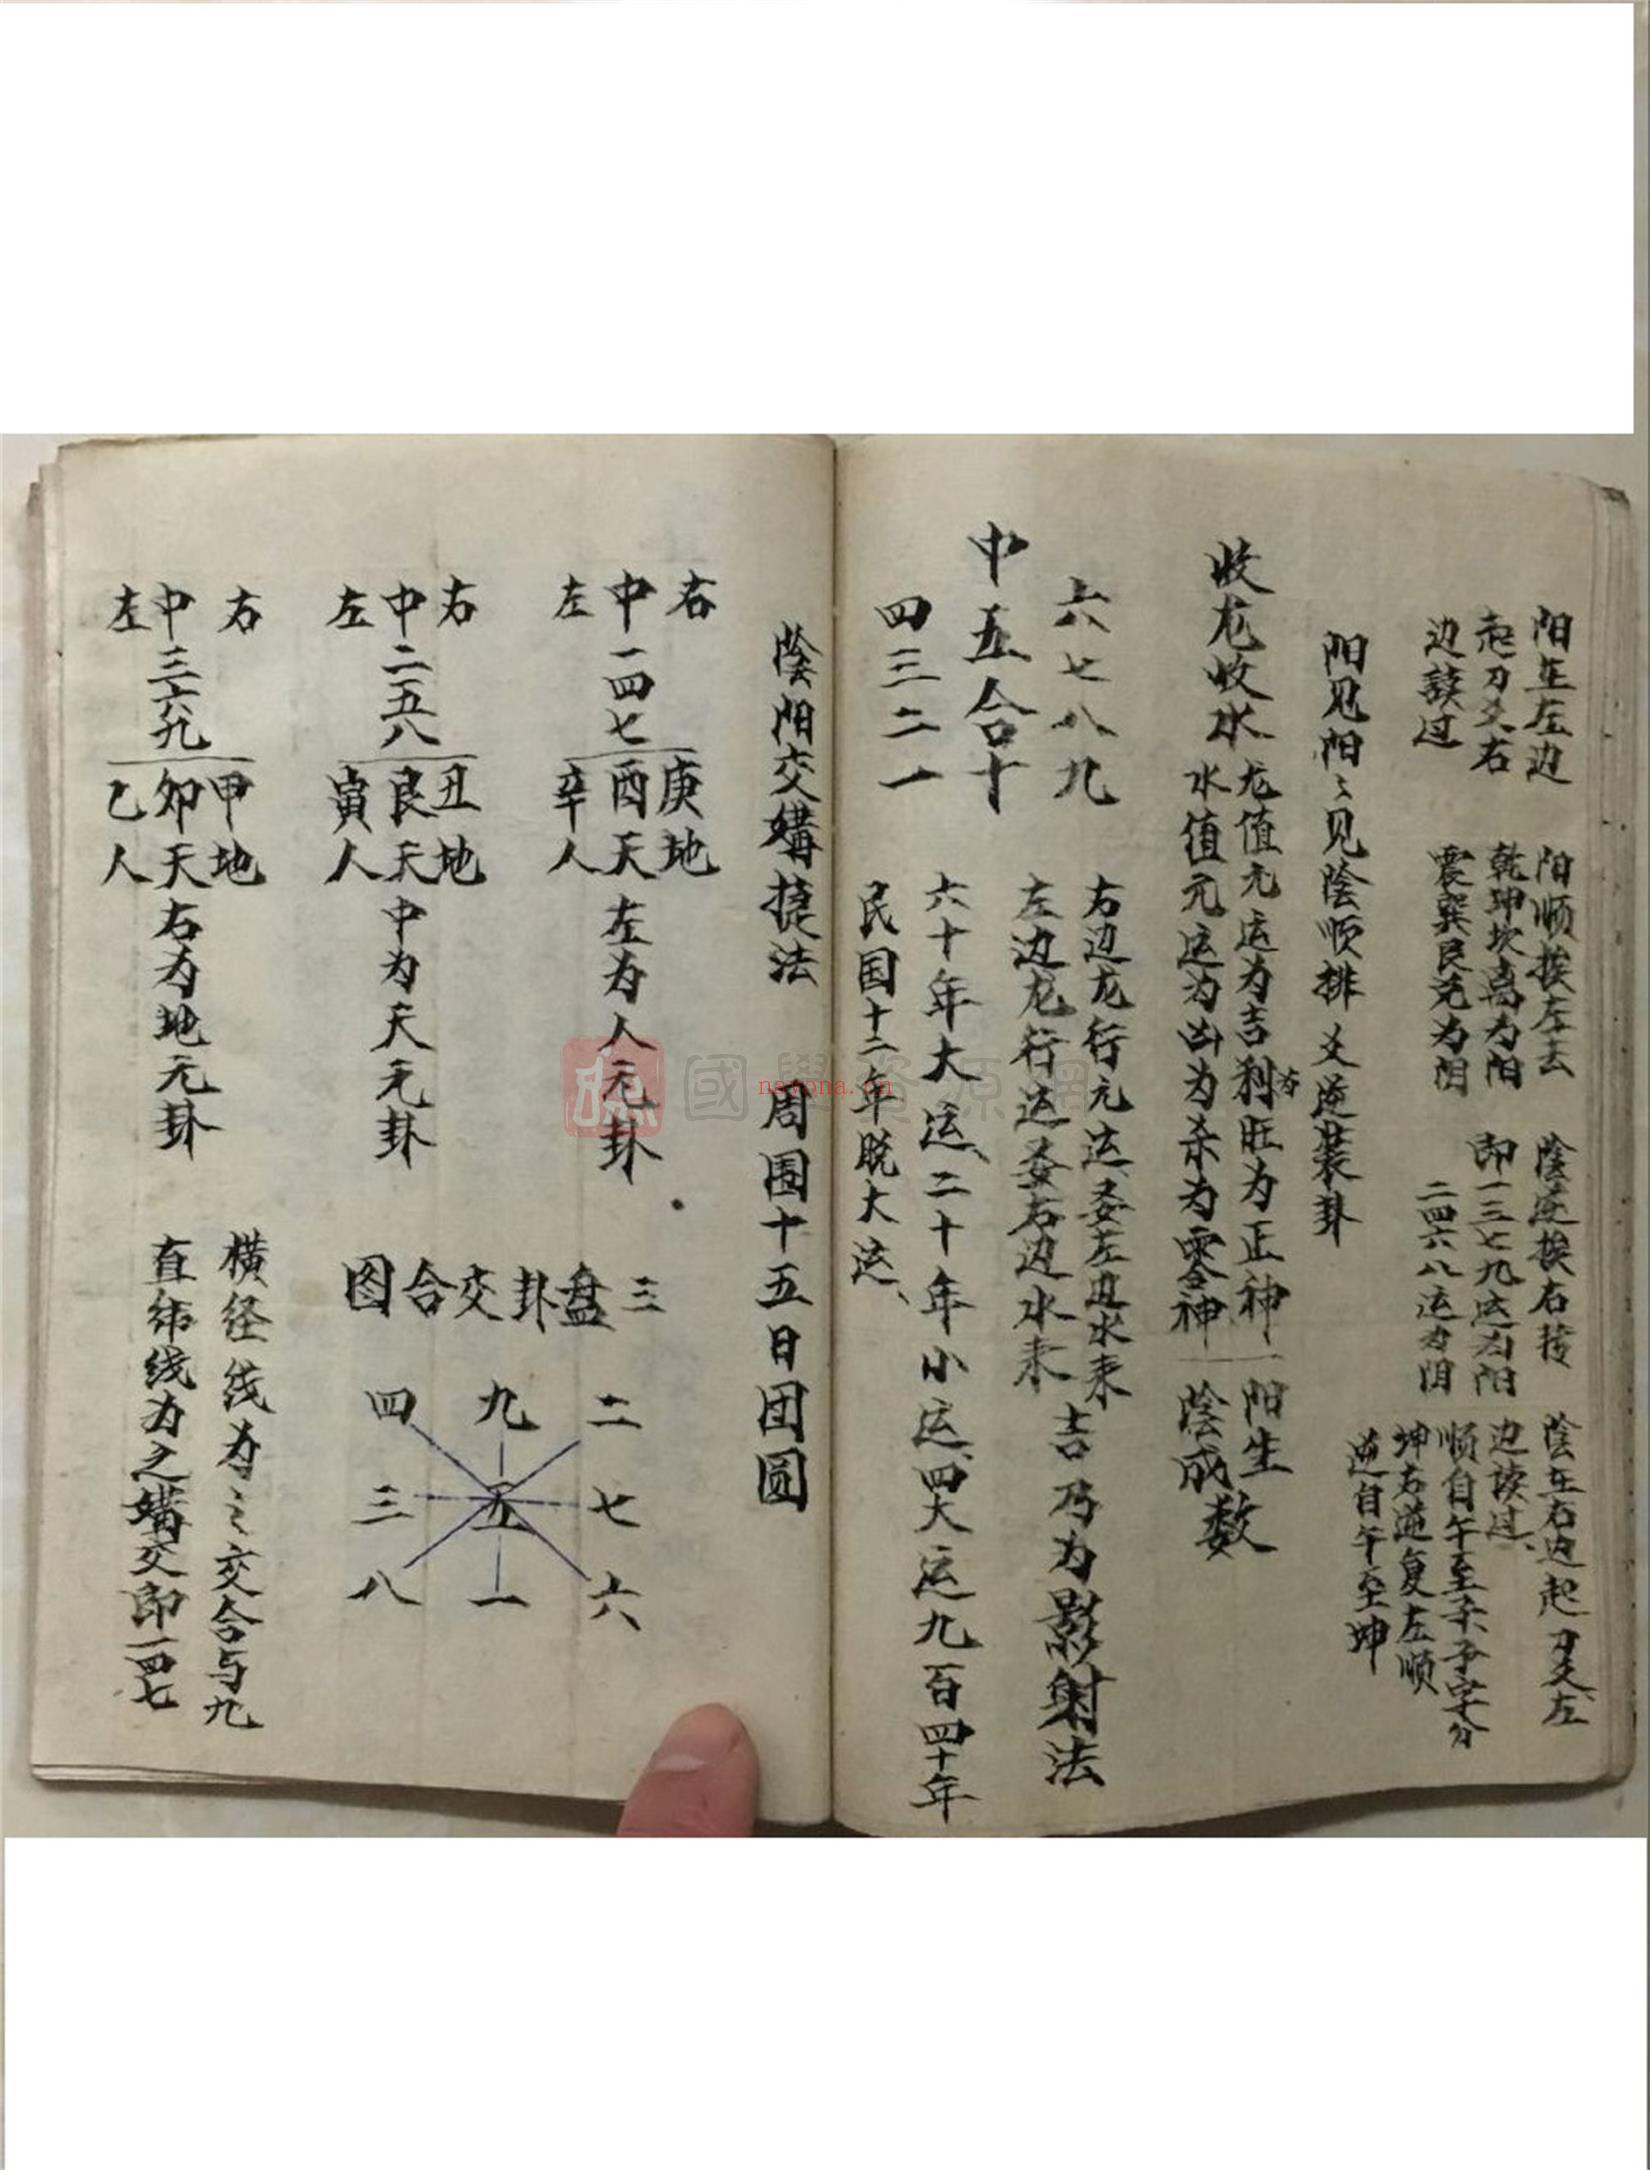 阳在左边
起刀爻右
边读过
阳顺挨左去
乾坤坎离为阳
震巽艮兑为阴
陰逆挨右转
即一三七九运为阳
二四六八运为阴
陰在右边起刀爻左
边读过、
顺自午至壬子字分
坤右逆复左顺
逆自午至坤
阳见阳〻见陰顺排爻逆装卦
收龙收水
龙值元运为吉利夯旺为正神一阳生
水值元运为凶为杀为零神 陰成数
六七八九
中五合十
四三二一
右边龙行元运、要左边水来
左边龙行运要右边水来
吉乃为影射法
六十年大运、二十年小运、四大运九百四十年
民国十二年脱大运、
陰阳交媾捷法 周围十五日团圆
右 庚地
中一四七 酉天左为人元卦
左 辛人
右 丑地
中二五八 艮天中为天元卦
左 寅人
右 甲地
中三六九 卯天右为地元卦
左 乙人
三盘卦交合图
四 九 二
三 五 七
八 一 六
横经线为〻交合与九
直纬线为之媾交即一四七
國學資源網
nayona.cn